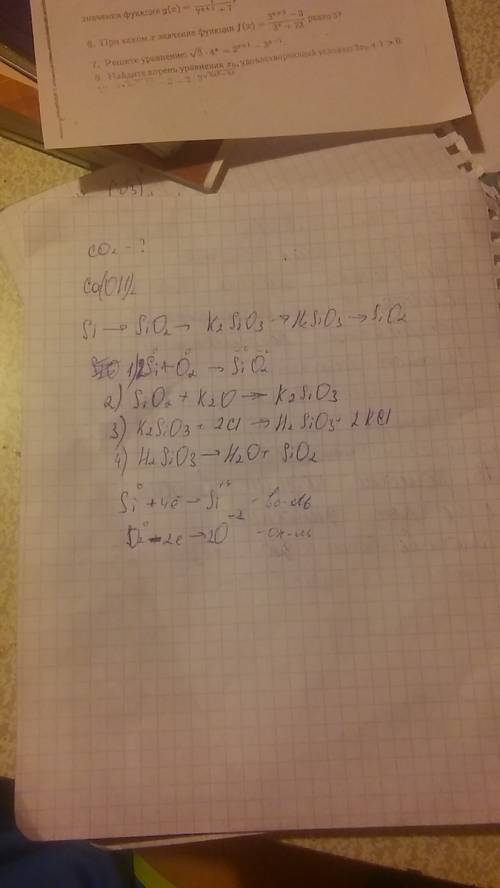 значения функции g(x) =
6. При каком x значение функции f(x) = равно 5?
7. Решите уравнение: √3 · 4ˣ = 2ˣ⁺¹ ·
8. Найдите корень уравнения x₀, удовлетворяющий условию + 1 > 0
CO₂ - ?
Ca(OH)₂
Si → SiO₂ → K₂SiO₃ → H₂SiO₃ → SiO₂
1) Si + O₂ → SiO₂
2) SiO₂ + K₂O → K₂SiO₃
3) K₂SiO₃ + 2Cl → H₂SiO₃ + 2KCl
4) H₂SiO₃ → H₂O + SiO₂
Si⁰ + 4e → Si⁺⁴ - во-ль
O₂⁰ - 2e → 2O⁻² - ок-ль